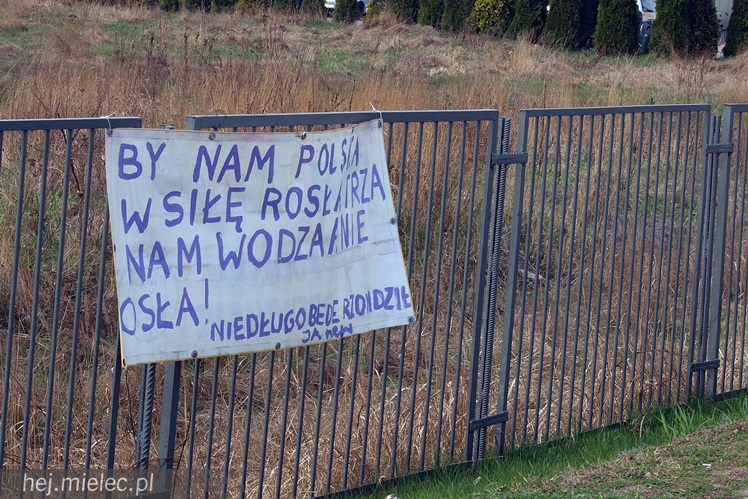 BY NAM POLSKA
W SIŁĘ ROSŁA TRZA
NAM WODZA A NIE
OSŁA!
NIEDŁUGO BEDE RZONDZIŁ
JA
hej.mielec.pl